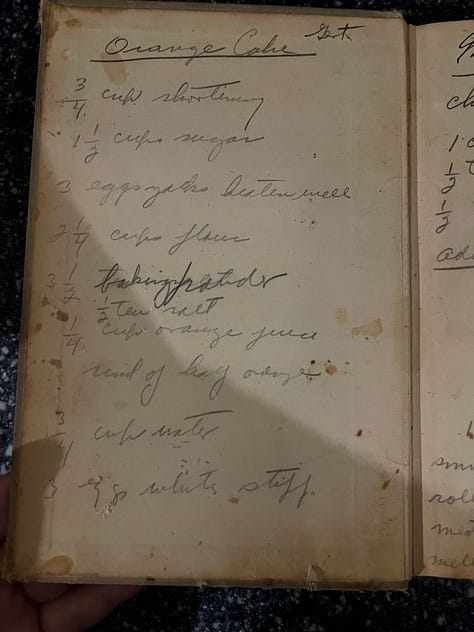 Orange Cake Gert.
3/4 cup shortening
1 1/2 cups sugar
3 eggs yolks beaten well
2 1/4 cups flour
3 1/2 baking powder
1/2 tea salt
1/4 cup orange juice
rind of half orange
3/4 cup water
3 eggs whites stiff
ch
1 c
1/2 t
1/2
add